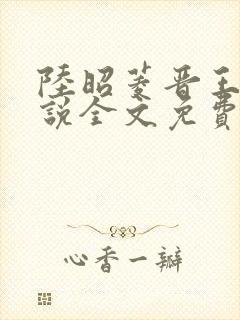 陸昭菱晋王
說全文免費
心香一瓣